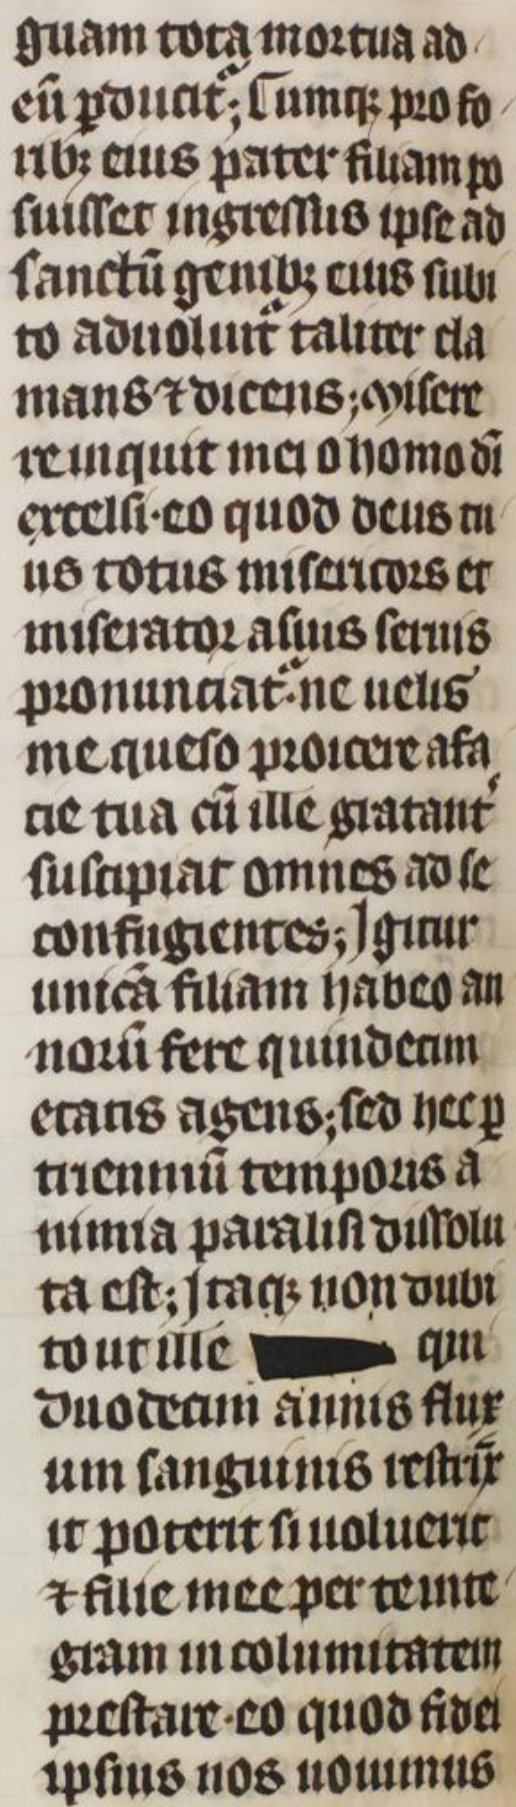 guam tota mortua ad
eū ꝑducit᷑; Cumqꝫ pro fo
ribꝫ eius pater filiam po
suisset ingressus ipse ad
sanctū genibꝫ eius subi
to aduoluit᷑ taliter cla
mans ⁊ dicens; Misere
re inquit mei o homo dī
excelsi· eo quod deus tu
us totus misericors et
miserator a suis seruis
pronunciat᷑· ne uelis
me queso proicere a fa
cie tua cū ille gratant᷑
suscipiat omnes ad se
confugientes; Igitur
unicā filiam habeo an
norū fere quindecim
etatis agens; sed hec ꝑ
trienniū temporis a
nimia paralisi dissolu
ta est; Itaqꝫ non dubi
to ut ille qui
duodecim annis flux
um sanguinis restrīx
it poterit si uoluerit
⁊ filie mee per te inte
gram in columitatem
prestare· eo quod fidei
ipsius nos nouimus